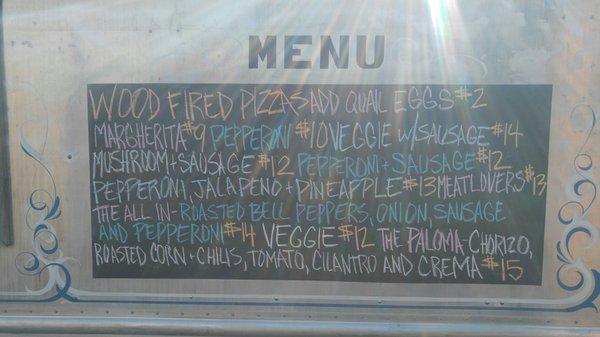 MENU
WOOD FIRED PIZZAS ADD QUAIL EGGS $2
MARGHERITA $9 PEPPERONI $10 VEGGIE W/SAUSAGE $14
MUSHROOM + SAUSAGE $12 PEPPERONI + SAUSAGE $12
PEPPERONI, JALAPENO + PINEAPPLE $13 MEATLOVERS $13
THE ALL IN - ROASTED BELL PEPPERS, ONION, SAUSAGE
AND PEPPERONI $14 VEGGIE $12 THE PALOMA - CHORIZO,
ROASTED CORN + CHILIS, TOMATO, CILANTRO AND CREMA $15